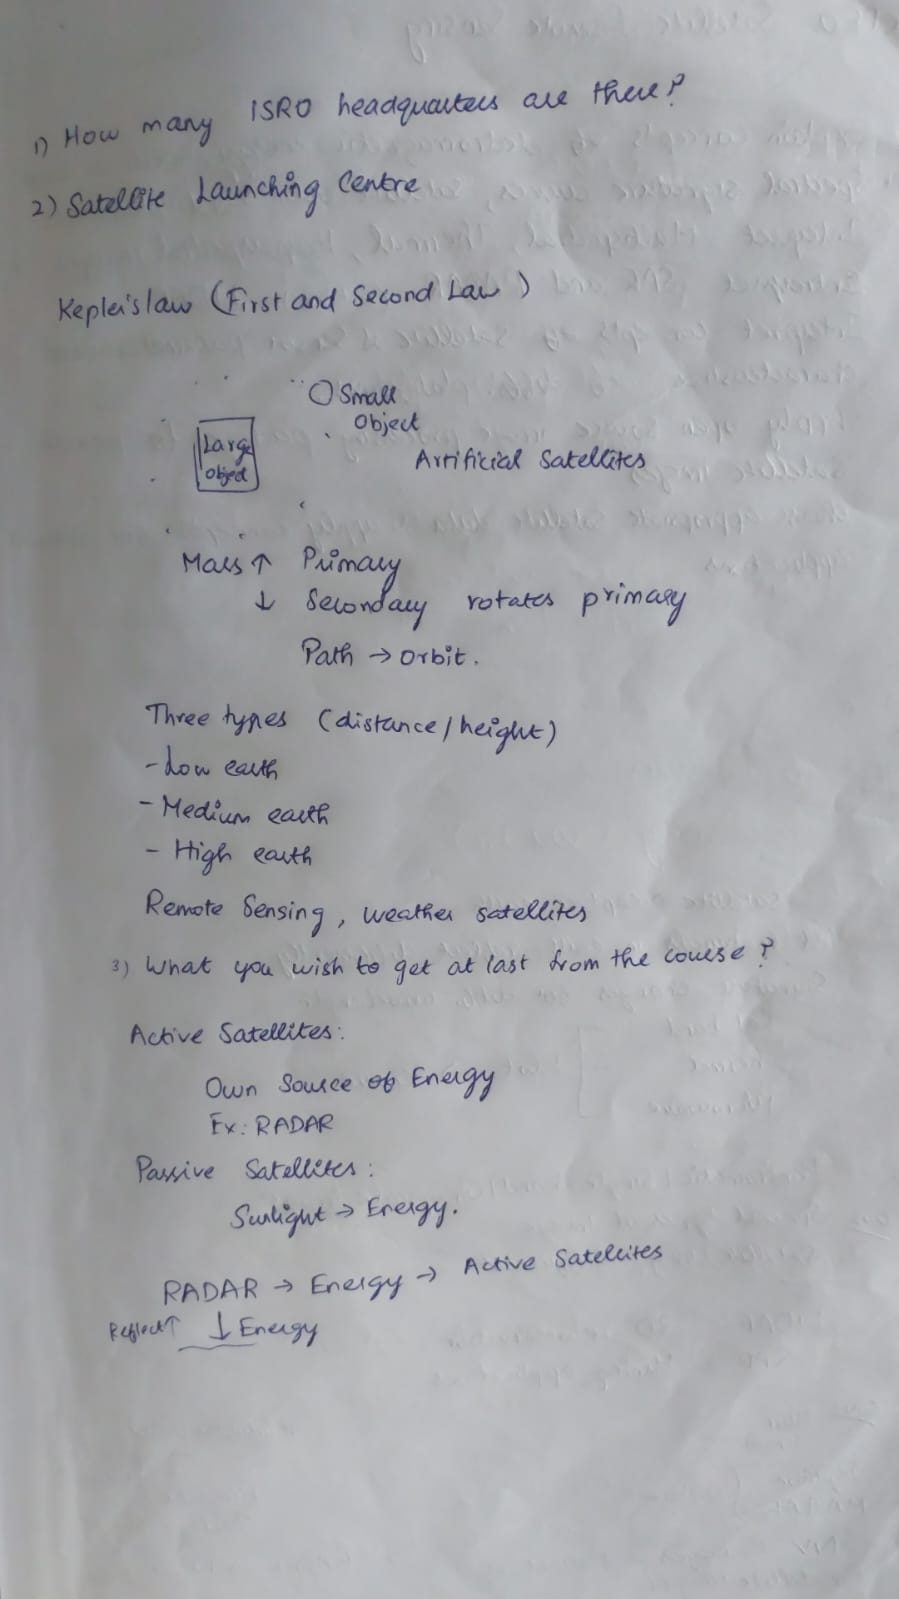 1) How many ISRO headquarters are there?
2) Satellite Launching Centre
Kepler's law (First and Second Law)
Small
Object
Large
Object
Artificial Satellites
Mass ↑ Primary
↓ Secondary rotates primary
Path → Orbit.
Three types (distance/height)
- Low earth
- Medium earth
- High earth
Remote Sensing, weather satellites
3) What you wish to get at last from the course?
Active Satellites:
Own Source of Energy
Ex: RADAR
Passive Satellites:
Sunlight → Energy.
RADAR → Energy → Active Satellites
Reflect↑ ↓ Energy